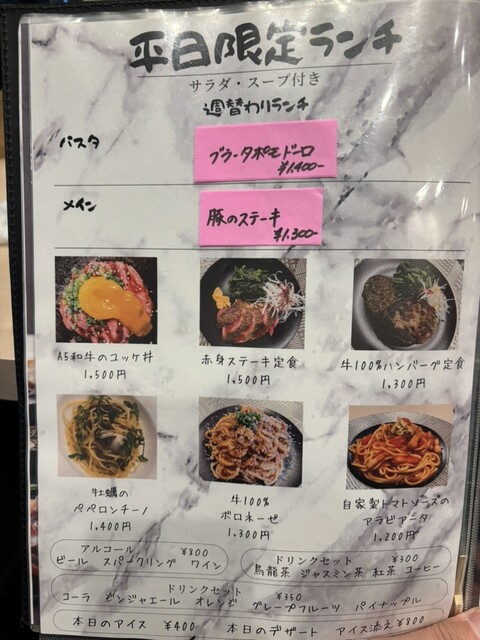 平日限定ランチ
サラダ・スープ付き
週替わりランチ
パスタ
ブラータポモドーロ
¥1,400-
メイン
豚のステーキ
¥1,300-
A5和牛のユッケ丼
1,500円
赤身ステーキ定食
1,500円
牛100%ハンバーグ定食
1,300円
牡蠣の
ペペロンチーノ
1,400円
牛100%
ボロネーゼ
1,300円
自家製トマトソースの
アラビアータ
1,200円
アルコール ¥800
ビール スパークリング ワイン
ドリンクセット ¥300
烏龍茶 ジャスミン茶 紅茶 コーヒー
ドリンクセット ¥350
コーラ ジンジャエール オレンジ グレープフルーツ パイナップル
本日のアイス ¥400
本日のデザート アイス添え ¥800